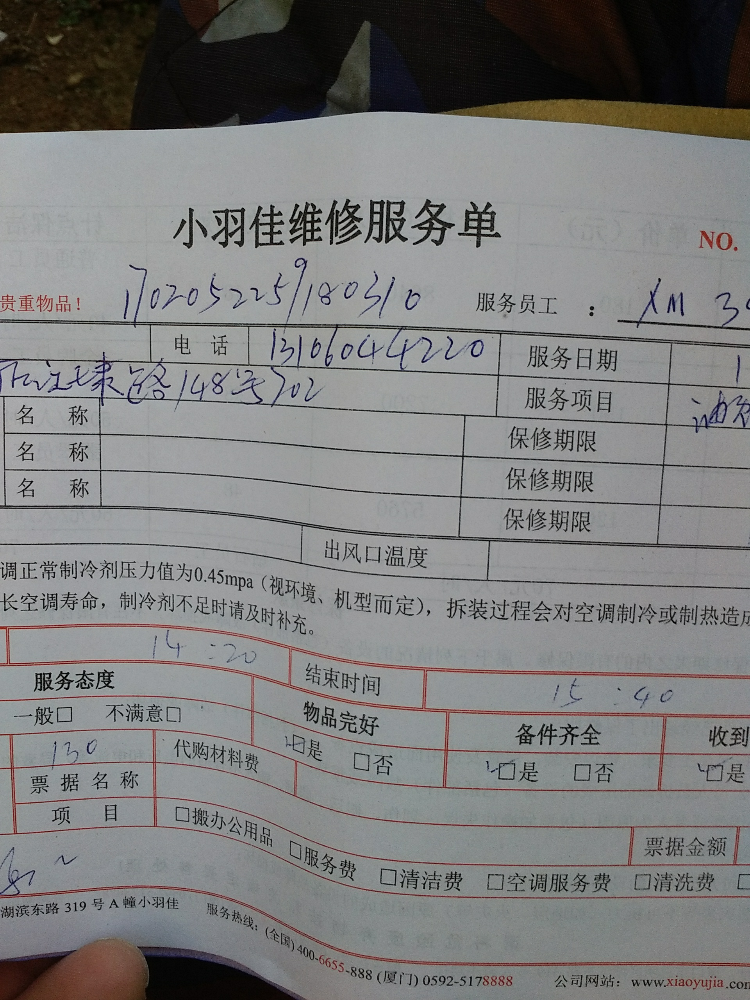 小羽佳维修服务单
NO.
贵重物品！ 1702052259180310 服务员工 ： XM 3
电 话 13106044220 服务日期 1
路148号702 服务项目 油
名 称 保修期限
名 称 保修期限
名 称 保修期限
出风口温度
调正常制冷剂压力值为0.45mpa（视环境、机型而定），拆装过程会对空调制冷或制热造成
长空调寿命，制冷剂不足时请及时补充。
14:20 结束时间 15:40
服务态度 物品完好 备件齐全 收到
一般□ 不满意□ □是 □否 □是 □否 □是
130 代购材料费
票 据 名 称 票据金额
项 目 □搬办公用品 □服务费 □清洁费 □空调服务费 □清洗费 □
湖滨东路 319 号 A 幢小羽佳 服务热线：(全国) 400-6655-888 (厦门) 0592-5178888 公司网站：www.xiaoyujia